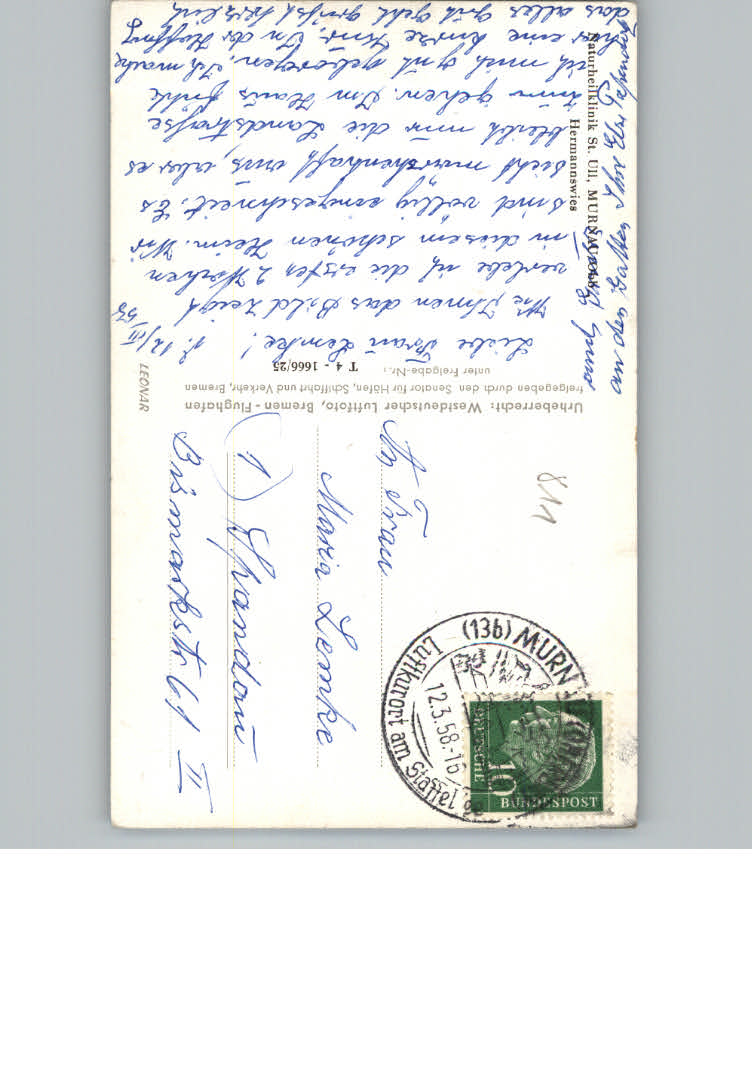 Naturheilklinik St. Ulli, MURNAU
Hermannswies
d. 12/III 58
Liebe Frau Lemke!
Wie Ihnen das Bild zeigt
verlebe ich die ersten 2 Wochen
in diesem schönen Heim. Wir
sind völlig eingeschneit. Es
sieht märchenhaft aus, aber es
bleibt nur die Landstraße
zum gehen. Im Haus fühle
ich mich gut geborgen. Ich mache
hier eine kurze Kur. In der Hoffnung
das alles gut geht grüßt herzlich
Urheberrecht: Westdeutscher Luftfoto, Bremen-Flughafen
freigegeben durch den Senator für Häfen, Schiffahrt und Verkehr, Bremen
unter Freigabe-Nr.: T 4 - 1666/25
LEONAR
An Frau
Maria Lemke
(1) Spandau
Bismarkstr 61 II
811
(13b) MURNAU
Luftkurort am Staffelsee
12.3.58-16
DEUTSCHE
BUNDESPOST
10